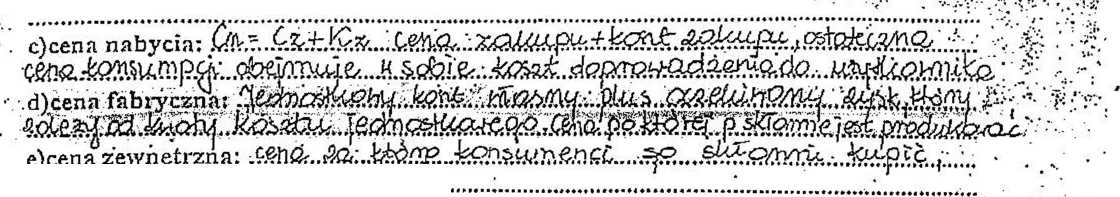 c)cena nabycia: Cn= Cz+Kz cena zakupu+koszt zakupu, ostateczna
cena konsumpcji obejmuje w sobie koszt doprowadzenia do użytkownika
d)cena fabryczna: Jednostkowy koszt własny plus oczekiwany zysk który
zależy od kwoty kosztu jednostkowego. Cena po której p skłonne jest produkować
e)cena zewnętrzna: cena za którą konsumenci są skłonni kupić,